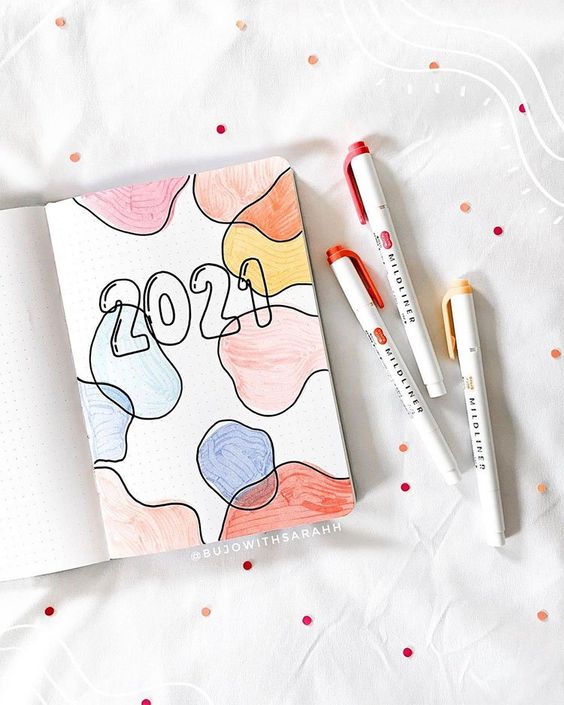 2021
MILDLINER
MILDLINER
MILDLINER
@BUJOWITHSARAHH